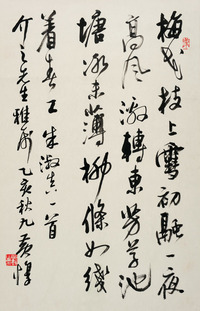 梅花枝上雪初融一夜
高風激轉東芳草池
塘冰未薄柳條如綫
着春工 朱淑真一首
先生雅屬 乙亥秋九 黃惇